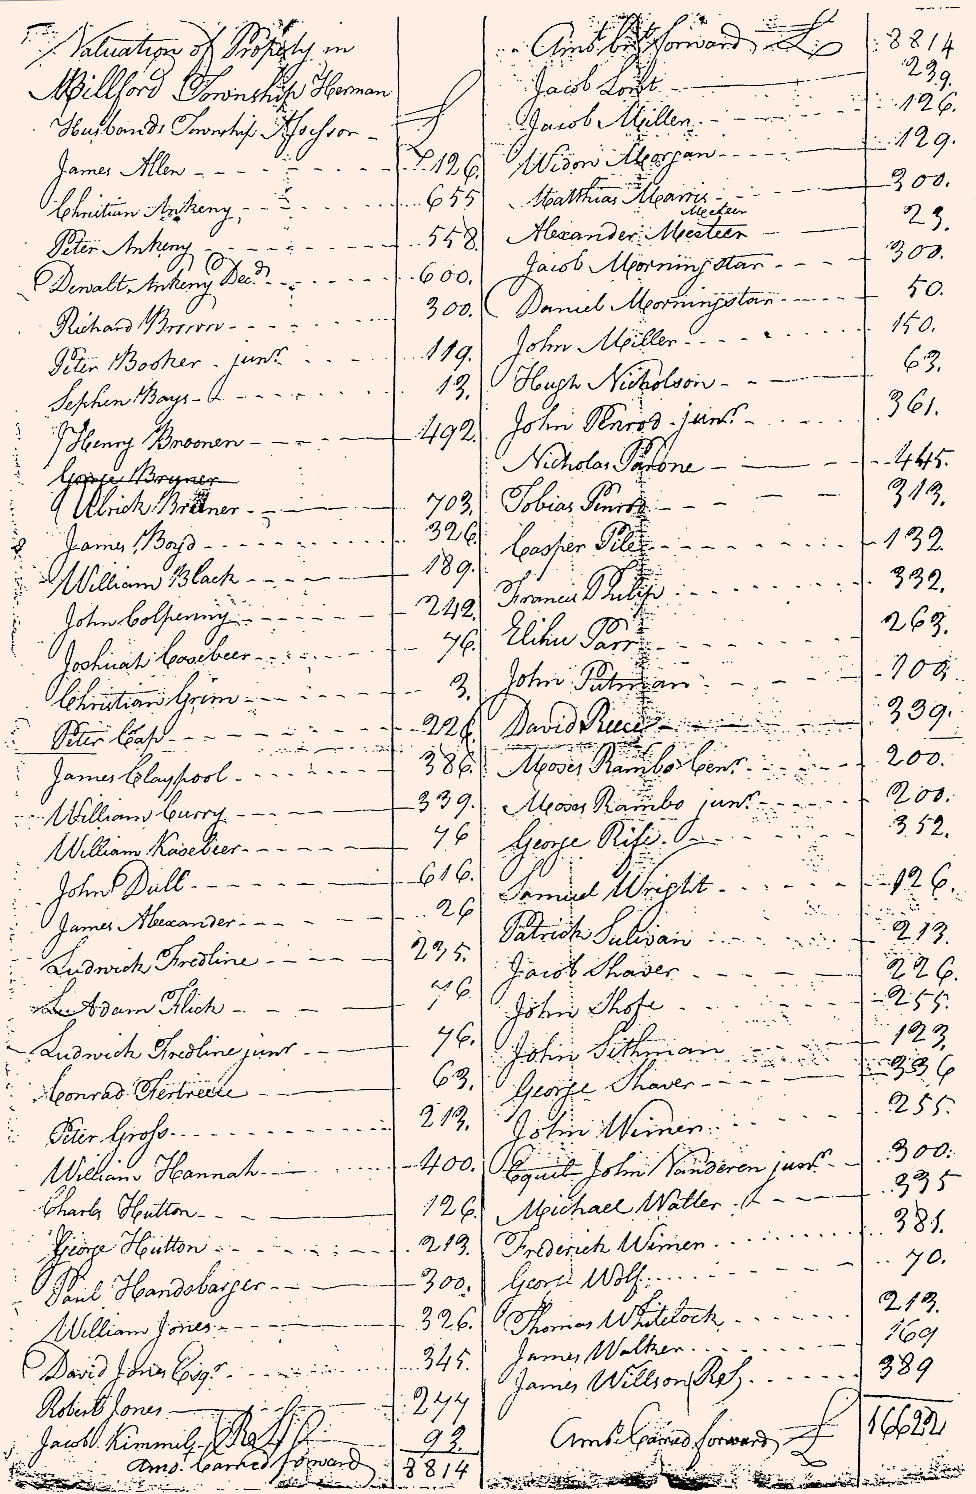 Valuation of Property in
Millford Township Herman
Husbands Township Assessor -
£
James Allen - 126.
Christian Ankeny - 655
Peter Ankeny - 558
Dewalt Ankeny Decd. - 600.
Richard Brown - 300.
Peter Booker junr. - 119.
Sephen Bays - 13.
Henry Broonen - 492.
George Bryner
Ulrick Bruner - 703.
James Boyd - 326
William Black - 189.
John Colpenny - 242.
Joshuah Casebeer - 76.
Christian Grim - 3.
Peter Cap - 226.
James Claypool - 386.
William Curry - 339.
William Kasebeer - 76
John Dull - 616.
James Alexander - 26
Ludwick Fredline - 235.
Adam Flick - 76
Ludwick Fredline junr - 76.
Conrad Fertreece - 63.
Peter Gross - 213.
William Hannah - 400.
Charls Hutton - 126.
George Hutton - 213.
Paul Handsbarger - 300.
William Jones - 326.
David Jones Esqr. - 345.
Robert Jones - 277
Jacob Kimmel - 93.
Amo. Carried forward 8814
Amt. brt. forward £ 8814
Jacob Lont - 239.
Jacob Miller - 126.
Widow Morgan - 129.
Matthias Marris - 300.
Mcteer
Alexander Mcsteer - 23.
Jacob Morningstar - 300.
Daniel Morningstar - 50.
John Miller - 150.
Hugh Nicholson - 63.
John Penrod junr. - 361.
Nicholas Parone - 445.
Tobias Penrod - 313.
Casper Pile - 132.
Francis Philip - 332.
Elihu Parr - 263.
John Putman - 100.
David Reece - 339.
Moses Rambo Cenr. - 200.
Moses Rambo junr. - 200.
George Rife - 352.
Samuel Wright - 126.
Patrick Sulivan - 213.
Jacob Shaver - 226.
John Shofe - 255.
John Sithman - 123.
George Shaver - 336
John Wimer - 255.
Equil John Vanderen junr. - 300.
Michael Watler - 335
Frederick Wimer - 381.
George Wolf - 70.
Thomas Whitelock - 213.
James Walker - 169
James Willson - 389
Amt. Carried forward £ 16622